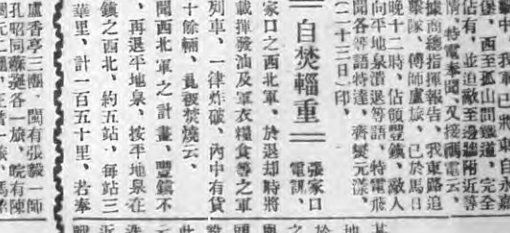 堡中、我軍已將東自永嘉
堡、西至孤山間鐵道、完全
佔有、並迫敵至邊牆附近等
情、特電奉聞、又接兩電云、
據商總指揮報告、我東路追
擊隊、傅師盧旅、已於馬日
晚十二時、佔領豐鎮、敵人
向平地泉潰退等語、特電飛
聞各等語特達、齊燮元漾、
(二十三日)印、
=自焚輜重=
張家口電訊、
家口之西北軍、於退却時將
載揮發油及軍衣糧食等之軍
列車、一律炸破、內中有貨
十餘輛、具被焚燒云、
聞西北軍之計畫、豐鎮不
、再退平地泉、按平地泉在
鎮之西北、約五站、每站三
華里、計二百五十里、若奉
盧香亭三團、閩有張毅一師
孔昭同蘇埏各一旅、皖有陳